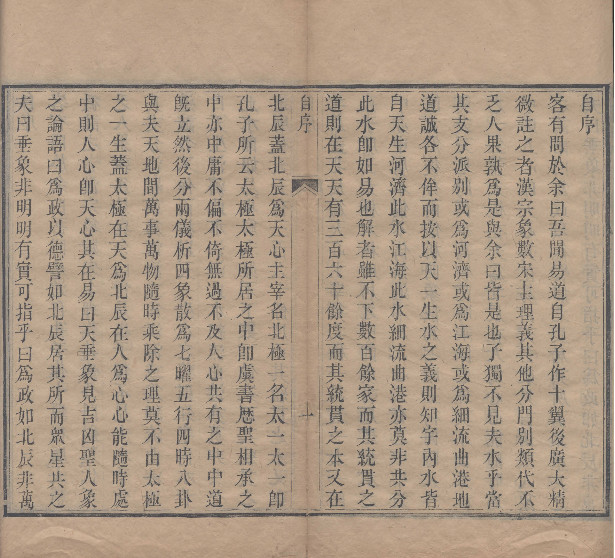 自序
客有問於余曰吾聞易道自孔子作十翼後廣大精
微註之者漢宗象數宋主理義其他分門別類代不
乏人果孰爲是與余曰皆是也子獨不見夫水乎當
其支分派別或爲河濟或爲江海或爲細流曲港地
道誠各不侔而按以天一生水之義則知宇內水皆
自天生河濟此水江海此水細流曲港亦莫非共分
此水卽如易也解者雖不下數百餘家而其統貫之
道則在天天有三百六十餘度而其統貫之本又在
自序
北辰蓋北辰爲天心主宰名北極一名太一太一卽
孔子所云太極太極所居之中卽虞書歴聖相承之
中亦中庸不偏不倚無過不及人心共有之中中道
旣立然後分兩儀析四象散爲七曜五行四時八卦
與夫天地間萬事萬物隨時乘除之理莫不由太極
之一生蓋太極在天爲北辰在人爲心心能隨時處
中則人心卽天心其在易曰天垂象見吉凶聖人象
之論語曰爲政以德譬如北辰居其所而眾星共之
夫曰垂象非明明有實可指乎曰爲政如北辰非萬